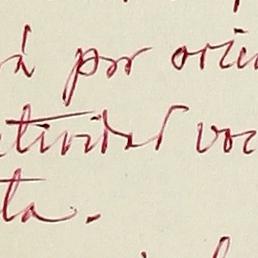 rá por orien
ctividad voc
ta.